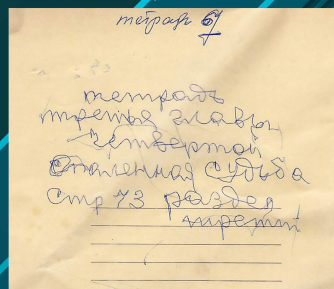 тетрадь 6
тетрадь
третья главы
четвертой
Опаленная судьба
стр 73 раздел
третий